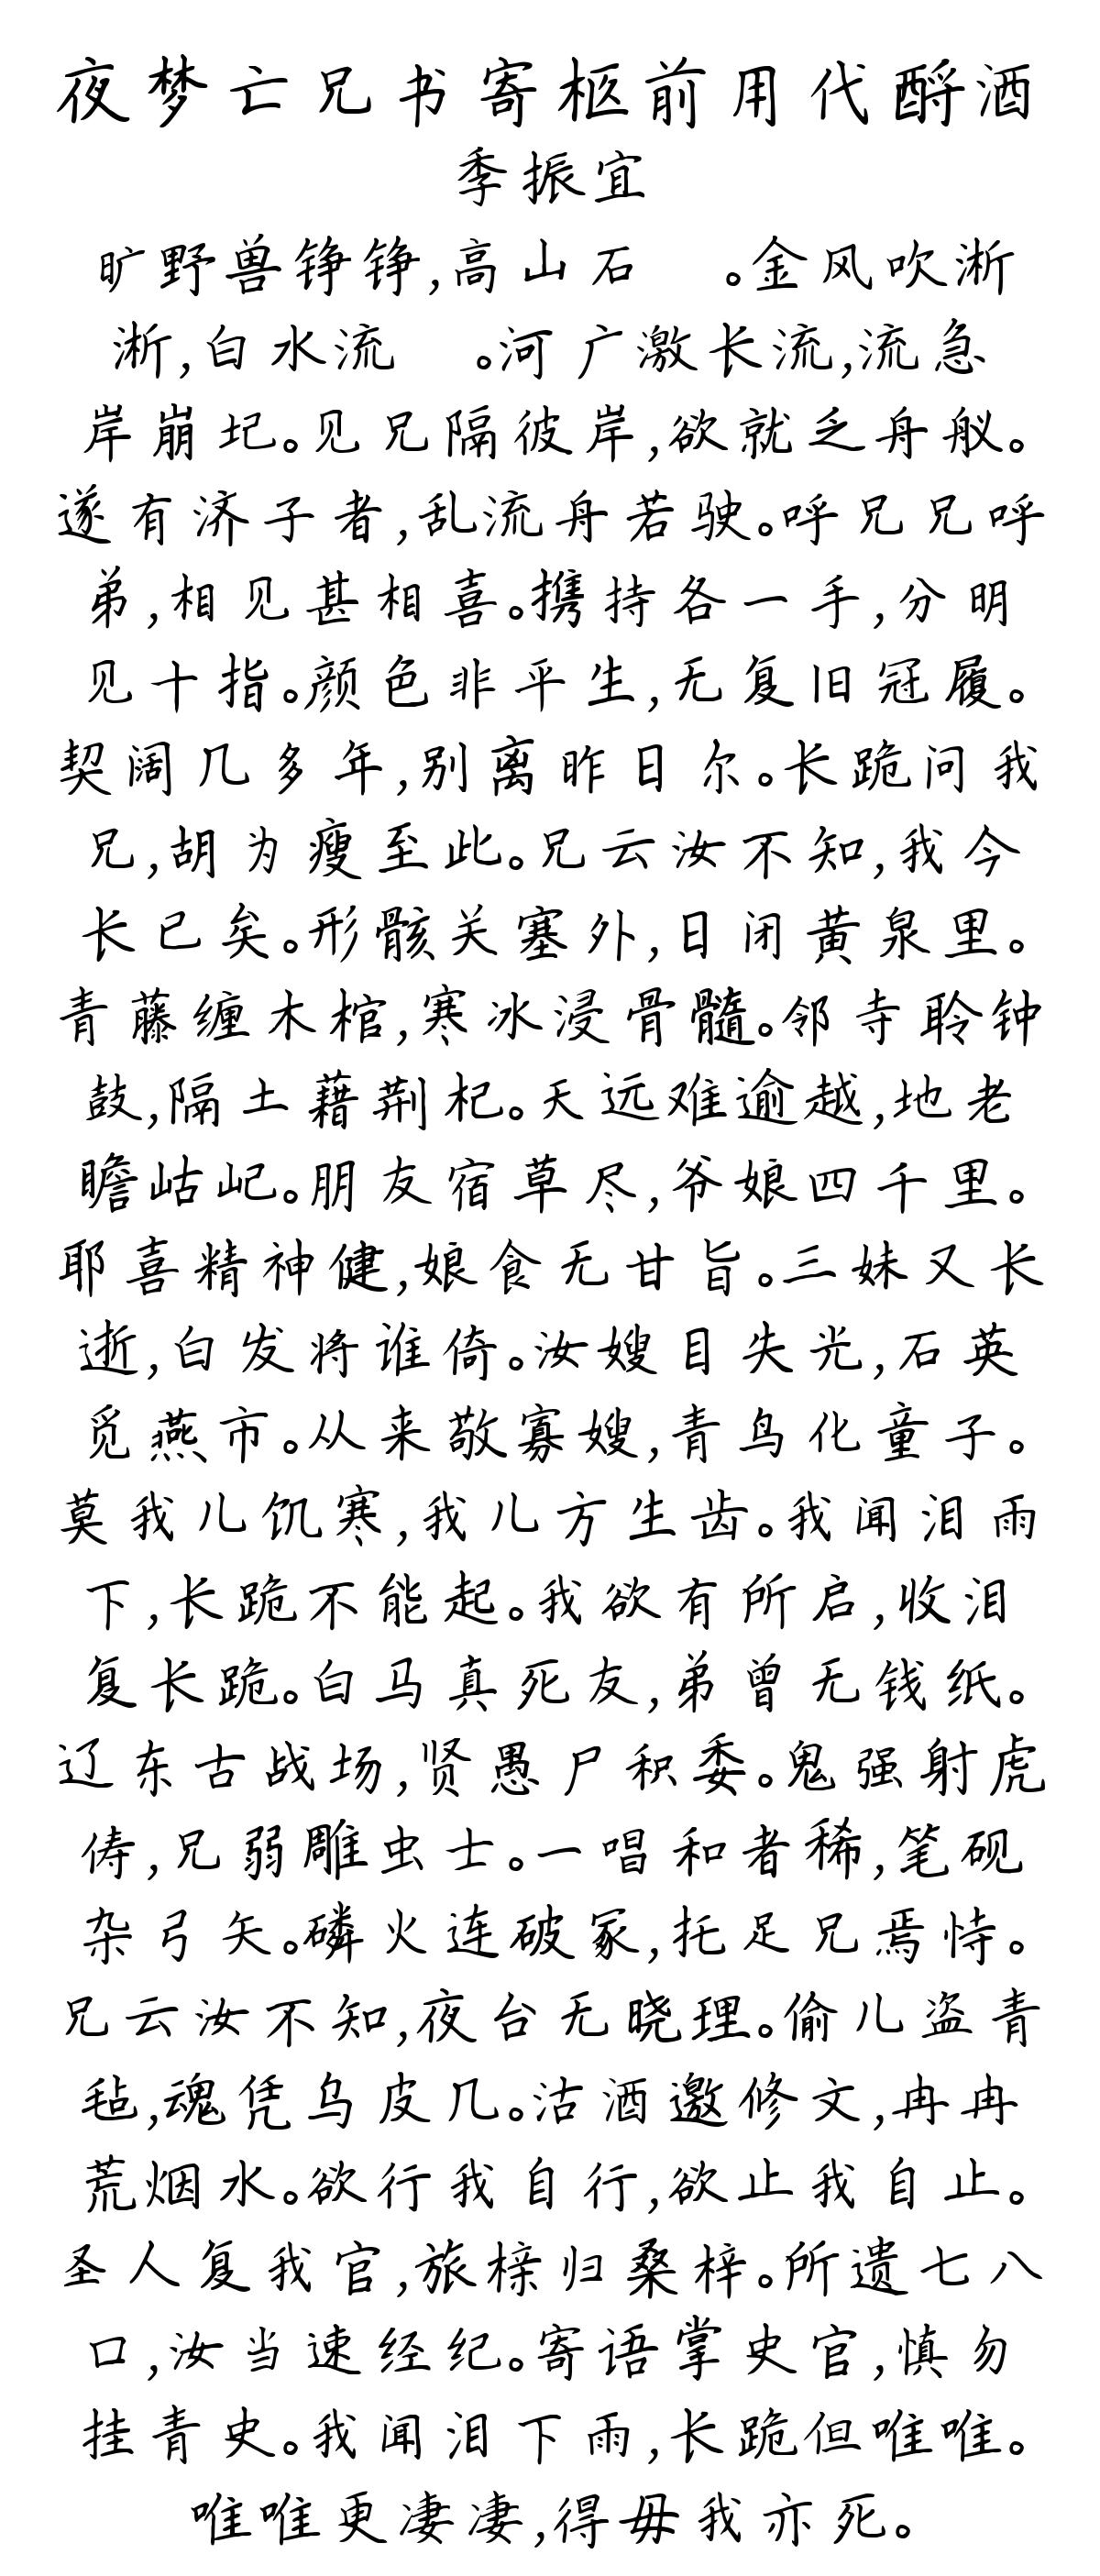 夜梦亡兄书寄柩前用代酹酒
季振宜
旷野兽铮铮,高山石　。金风吹淅
淅,白水流　。河广激长流,流急
岸崩圮。见兄隔彼岸,欲就乏舟舣。
遂有济子者,乱流舟若驶。呼兄兄呼
弟,相见甚相喜。携持各一手,分明
见十指。颜色非平生,无复旧冠履。
契阔几多年,别离昨日尔。长跪问我
兄,胡为瘦至此。兄云汝不知,我今
长已矣。形骸关塞外,日闭黄泉里。
青藤缠木棺,寒冰浸骨髓。邻寺聆钟
鼓,隔土藉荆杞。天远难逾越,地老
瞻岵屺。朋友宿草尽,爷娘四千里。
耶喜精神健,娘食无甘旨。三妹又长
逝,白发将谁倚。汝嫂目失光,石英
觅燕市。从来敬寡嫂,青鸟化童子。
莫我儿饥寒,我儿方生齿。我闻泪雨
下,长跪不能起。我欲有所启,收泪
复长跪。白马真死友,弟曾无钱纸。
辽东古战场,贤愚尸积委。鬼强射虎
俦,兄弱雕虫士。一唱和者稀,笔砚
杂弓矢。磷火连破冢,托足兄焉恃。
兄云汝不知,夜台无晓理。偷儿盗青
毡,魂凭乌皮几。沽酒邀修文,冉冉
荒烟水。欲行我自行,欲止我自止。
圣人复我官,旅榇归桑梓。所遗七八
口,汝当速经纪。寄语掌史官,慎勿
挂青史。我闻泪下雨,长跪但唯唯。
唯唯更凄凄,得毋我亦死。